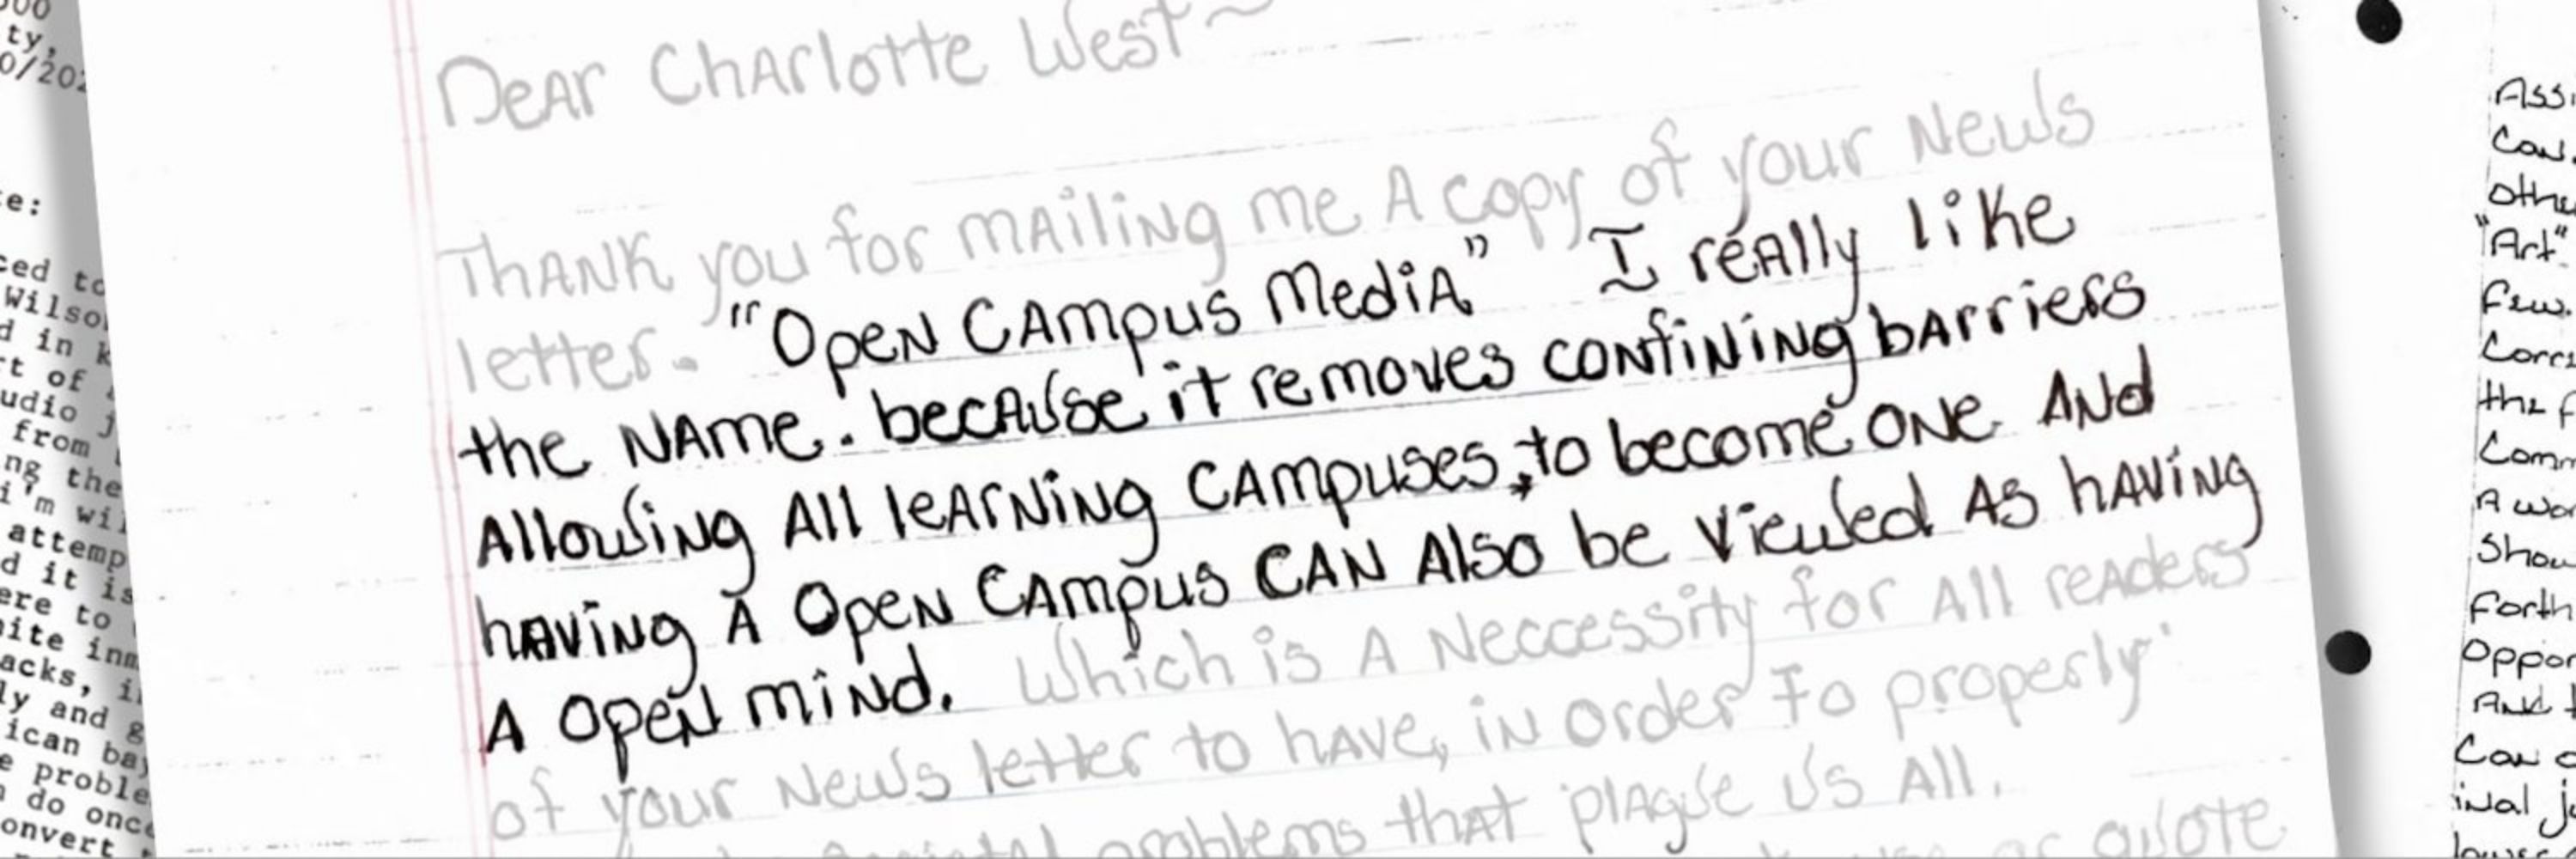 Dear Charlotte West~
Thank you for mailing me A copy of your News
letter. "Open Campus Media" I really like
the Name. because it removes confining barriers
Allowing All learning Campuses, to become one. And
having A Open Campus can Also be viewed As having
A Open mind. Which is A Neccessity for All readers
of your News letter to have, in order to properly
problems that plague us All.
quote
00
ty,
0/202
te:
ced to
Wilson
d in k
rt of
udio j
from
ng the
i'm wil
attemp
d it is
ere to
nite inm
acks, i
ly and g
ican bay
e proble
n do once
onvert
Assi
Can
othe
"Art"
few.
Corri
the f
Comm
A wor
Shou
forth
Oppor
And t
Can o
inal ju